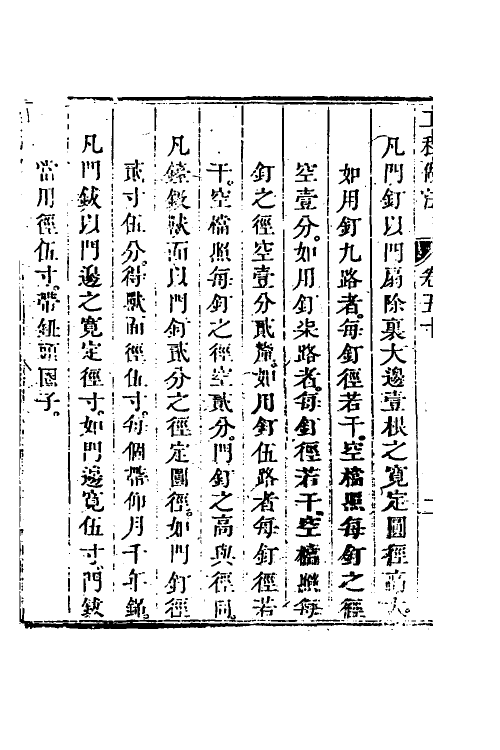 工程做法 卷五十 二
凡門釘以門扇除裏大邊壹根之寬定圓徑高大。
如用釘九路者。每釘徑若干。空檔照每釘之徑
空壹分。如用釘柒路者。每釘徑若干。空檔照每
釘之徑空壹分貳釐。如用釘伍路者每釘徑若
干。空檔照每釘之徑空貳分。門釘之高與徑同。
凡鐃鈸獸面以門釘貳分之徑定圓徑。如門釘徑
貳寸伍分。得獸面徑伍寸。每個帶仰月千年鋦。
凡門鈸以門邊之寬定徑寸。如門邊寬伍寸。門鈸
當用徑伍寸。帶紐頭圈子。